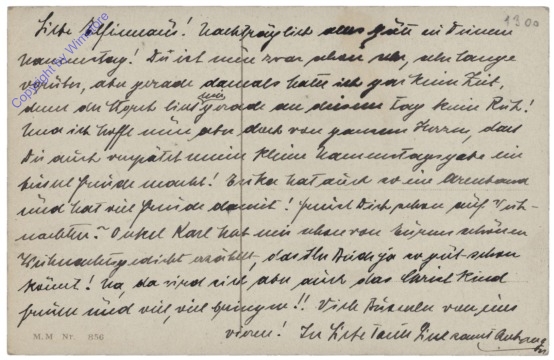 1300
Liebe Elfimaus! Nachträglich alles gute zu Deinem
Namenstag! Du ist nun zwar schon sehr, sehr lange
vorüber, aber gerade damals hatte ich gar keine Zeit,
denn der Storch ließ uns gerade an diesem Tag keine Ruh!
Und ich hoffe nun aber doch von ganzem Herzen, daß
Dir auch verspätet meine kleine Namenstagsgabe ein
bissel Freude macht! Erika hat auch so ein Armband
und hat viel Freude damit! Freust Dich schon auf Weih-
nachten? Onkel Karl hat mir schon von Eurem schönen
Weihnachtsgedicht erzählt, das Ihr Beide ja so gut schon
könnt! Na, da wird sich aber auch das Christkind
freuen und viel, viel bringen!! Viele Busserln von uns
vieren! In Liebe Tante Liesl samt Anhang
M.M Nr. 856
Copyright by Winsstore